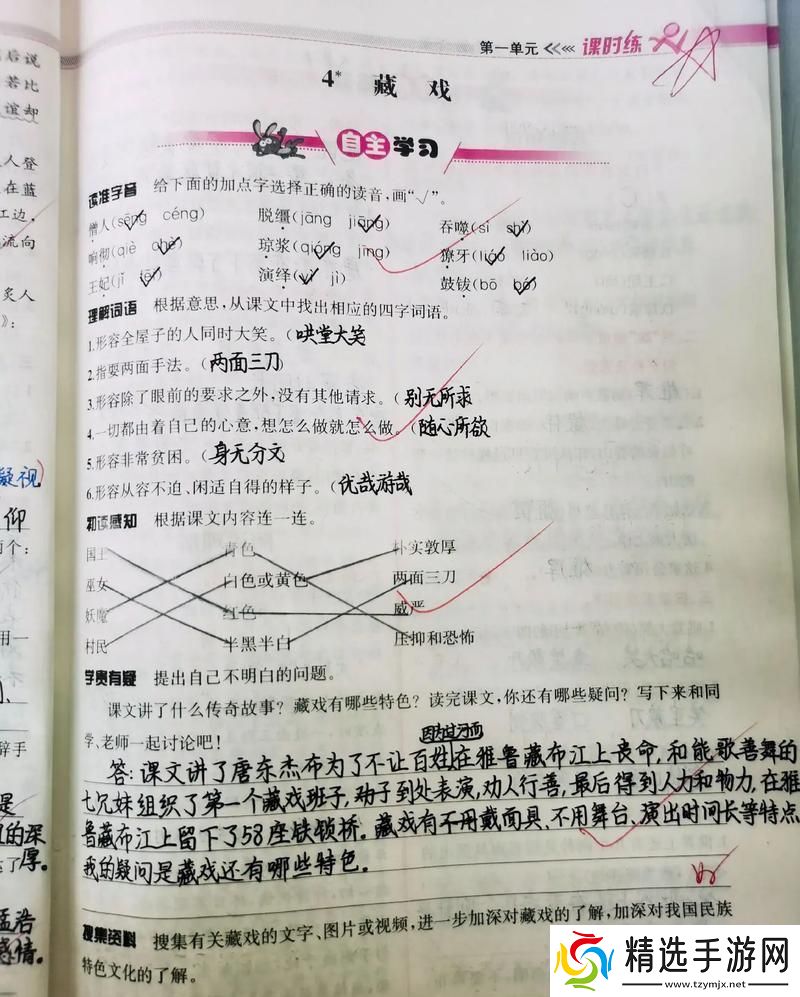 第一单元 课时练
4* 藏戏
自主学习
读准字音 给下面的加点字选择正确的读音,画“√”。
僧人(sēng céng) 脱缰(jāng jiāng) 吞噬(sì shì)
响彻(qiè chè) 琼浆(qióng jīng) 獠牙(liáo liào)
王妃(jī fēi) 演绎(yì jì) 鼓钹(bō bó)
理解词语 根据意思,从课文中找出相应的四字词语。
1.形容全屋子的人同时大笑。(哄堂大笑
2.指耍两面手法。(两面三刀)
3.形容除了眼前的要求之外,没有其他请求。(别无所求
4.一切都由着自己的心意,想怎么做就怎么做。(随心所欲
5.形容非常贫困。(身无分文
6.形容从容不迫、闲适自得的样子。(优哉游哉
初读感知 根据课文内容连一连。
国王 青色 朴实敦厚
巫女 白色或黄色 两面三刀
妖魔 红色 威严
村民 半黑半白 压抑和恐怖
学贵有疑 提出自己不明白的问题。
课文讲了什么传奇故事?藏戏有哪些特色?读完课文,你还有哪些疑问?写下来和同
学、老师一起讨论吧!
因为过河而
答:课文讲了唐东杰布为了不让百姓在雅鲁藏布江上丧命,和能歌善舞的
七兄妹组织了第一个藏戏班子,到处表演,劝人行善,最后得到人力和物力,在雅
鲁藏布江上留下了58座铁锁桥。藏戏有不用戴面具、不用舞台、演出时间长等特点
我的疑问是藏戏还有哪些特色。
搜集资料 搜集有关藏戏的文字、图片或视频,进一步加深对藏戏的了解,加深对我国民族
特色文化的了解。
后说
若比
谊却
人登
在蓝
江边,
流向
炙人
》:
凝视)
仰
个:
用一
辞手
是
的深
厚。
孟浩
感情。
精选手游网
www.tzymjx.net